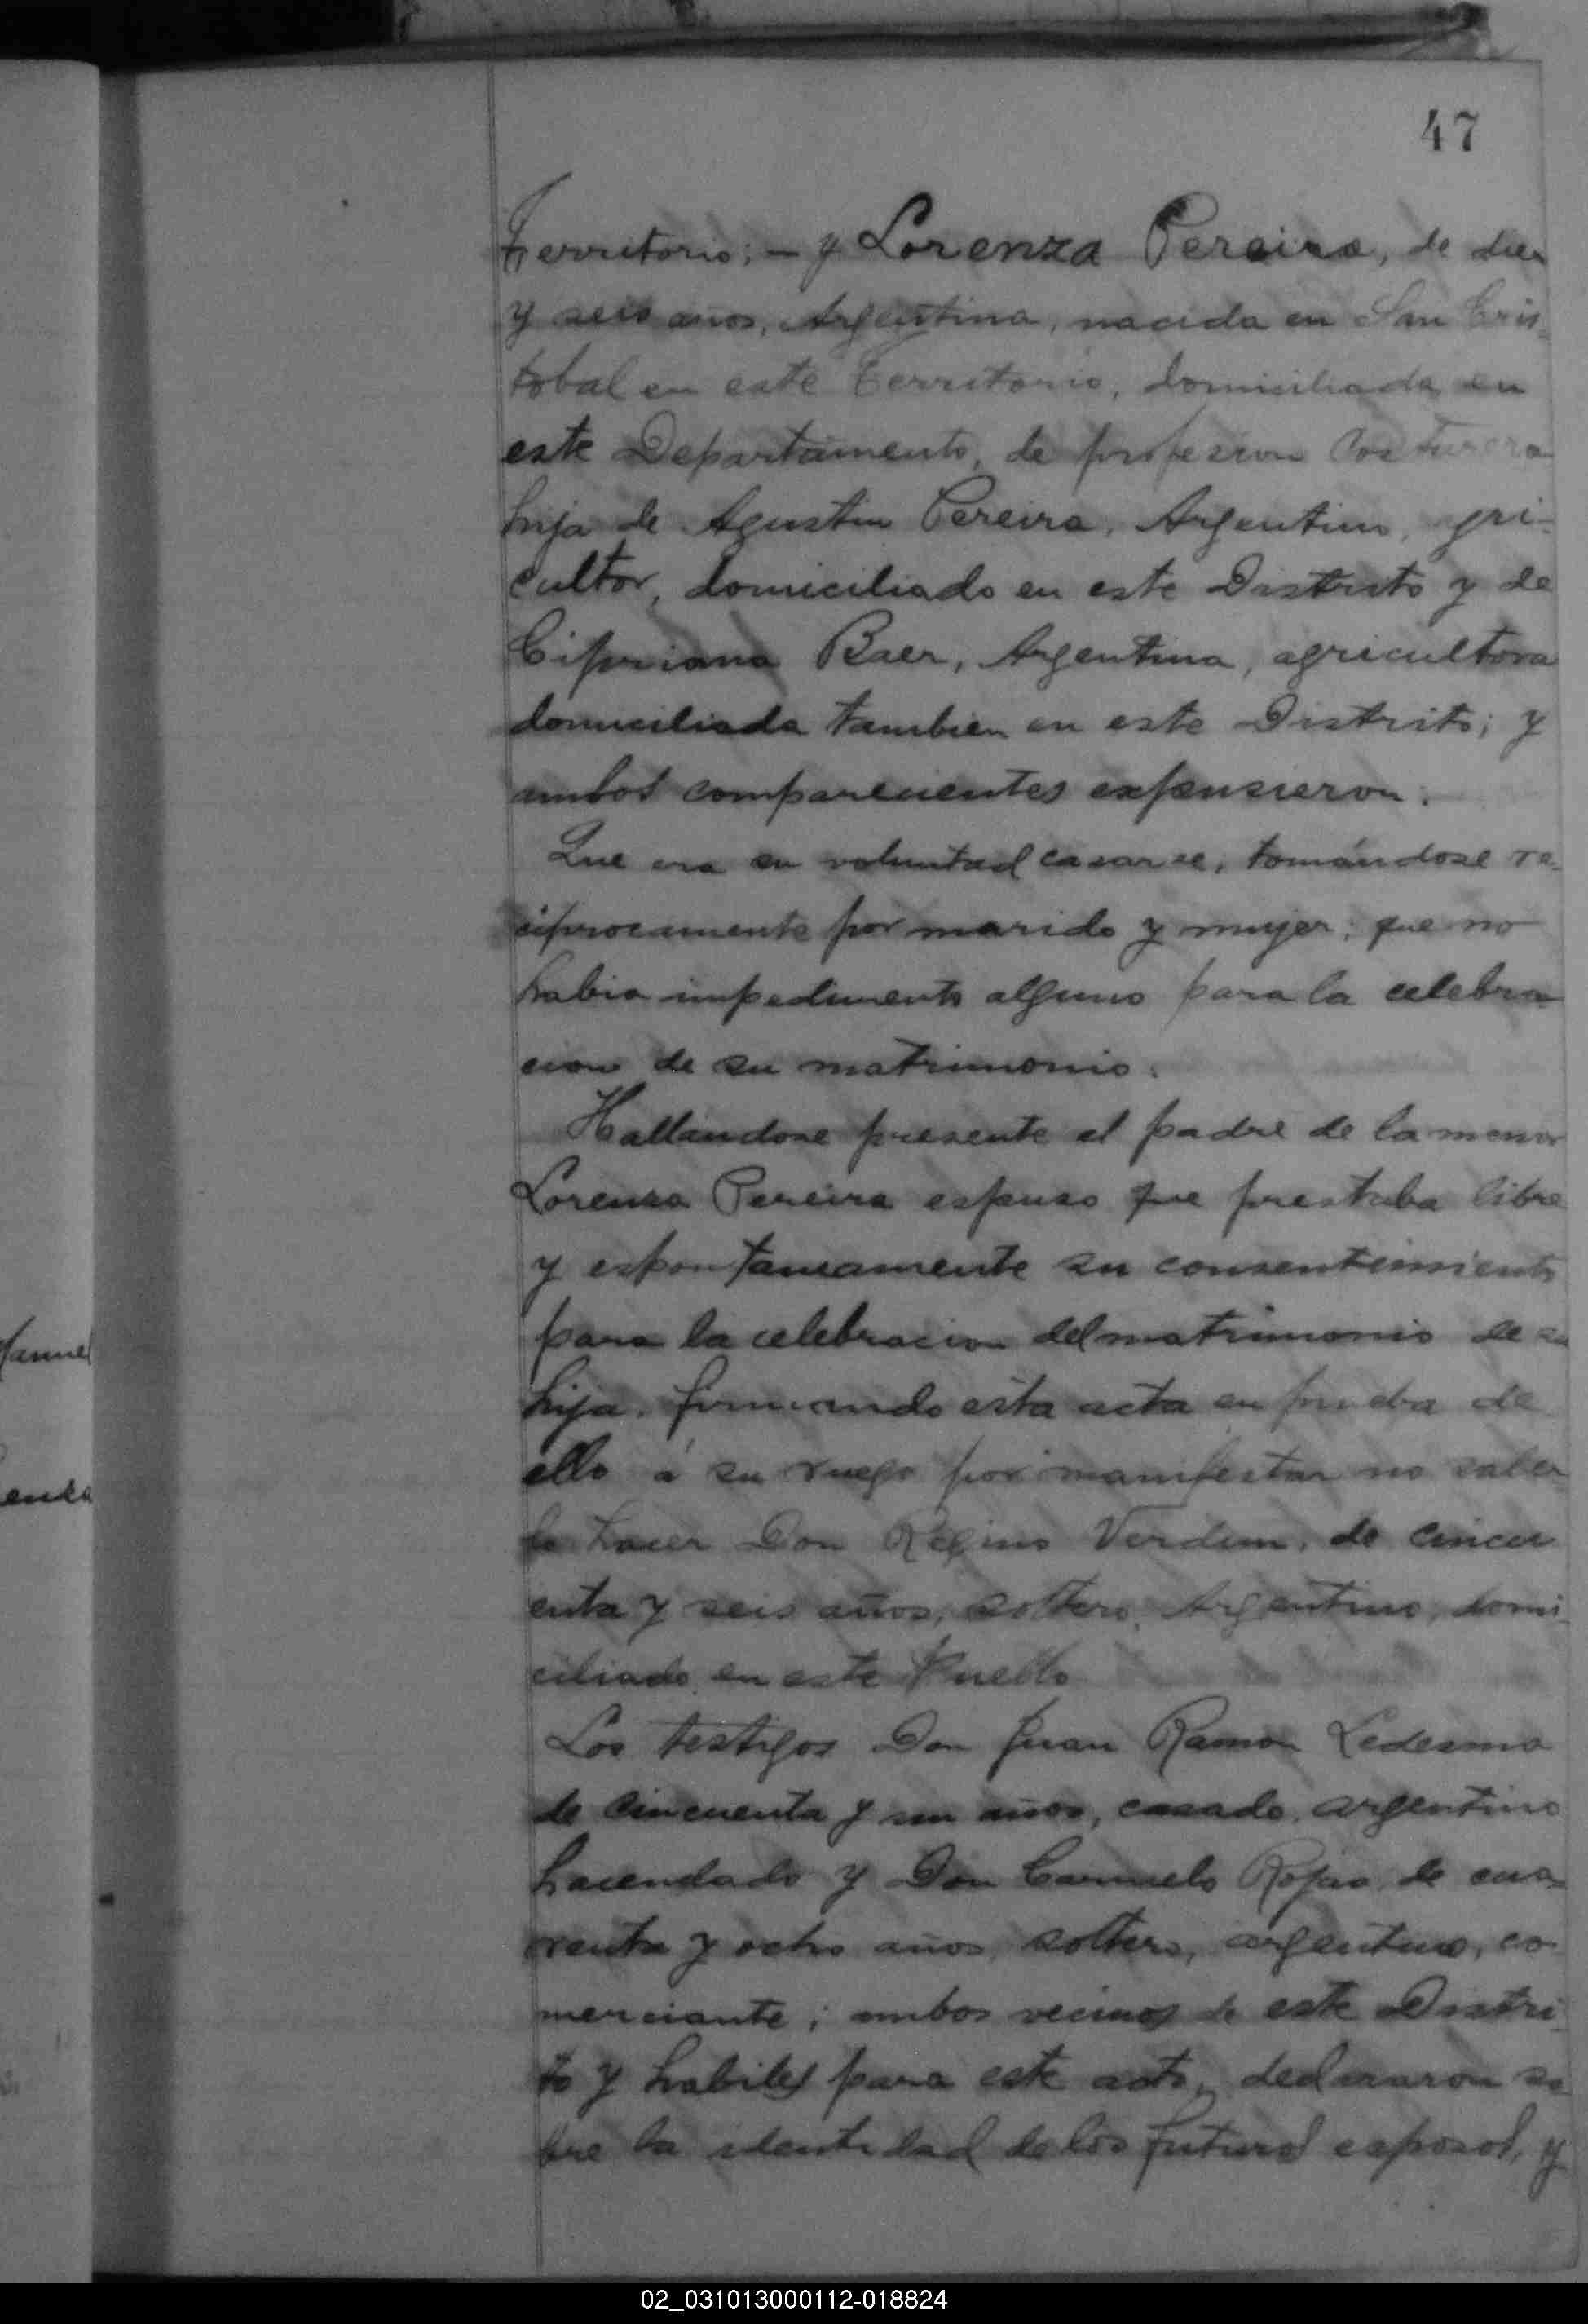 47
Territorio; – y Lorenza Pereira, de diez
y seis años, Argentina, nacida en San Cris-
tobal en este Territorio, domiciliada en
este Departamento, de profesion Costurera
hija de Agustin Pereira, Argentino, gri-
cultor, domiciliado en este Distrito y de
Cipriana Baer, Argentina, agricultora
domiciliada tambien en este Distrito; y
ambos comparecientes expensieron:
Que era su voluntad casarse, tomándose re-
ciprocamente por marido y mujer; que no
habia impedimento alguno para la celebra-
cion de su matrimonio.
Hallandose presente el padre de la menor
Lorenza Pereira espuso que prestaba libre
y espontaneamente su consentimiento
para la celebracion del matrimonio de su
hija, firmando esta acta en prueba de
ello á su ruego por manifestar no saber
lo hacer Don Regino Verdun, de cincu
enta y seis años, soltero, Argentino, domi-
ciliado en este Pueblo
Los testigos Don Juan Ramon Ledesma
de cincuenta y un años, casado, argentino
hacendado y Don Carmelo Rojas, de cua-
renta y ocho años, soltero, argentino, co-
merciante; ambos vecinos de este Distri-
to y habiles para este acto, declararon so-
bre la identidad de los futuros esposos, y
Manuel
02_031013000112-018824